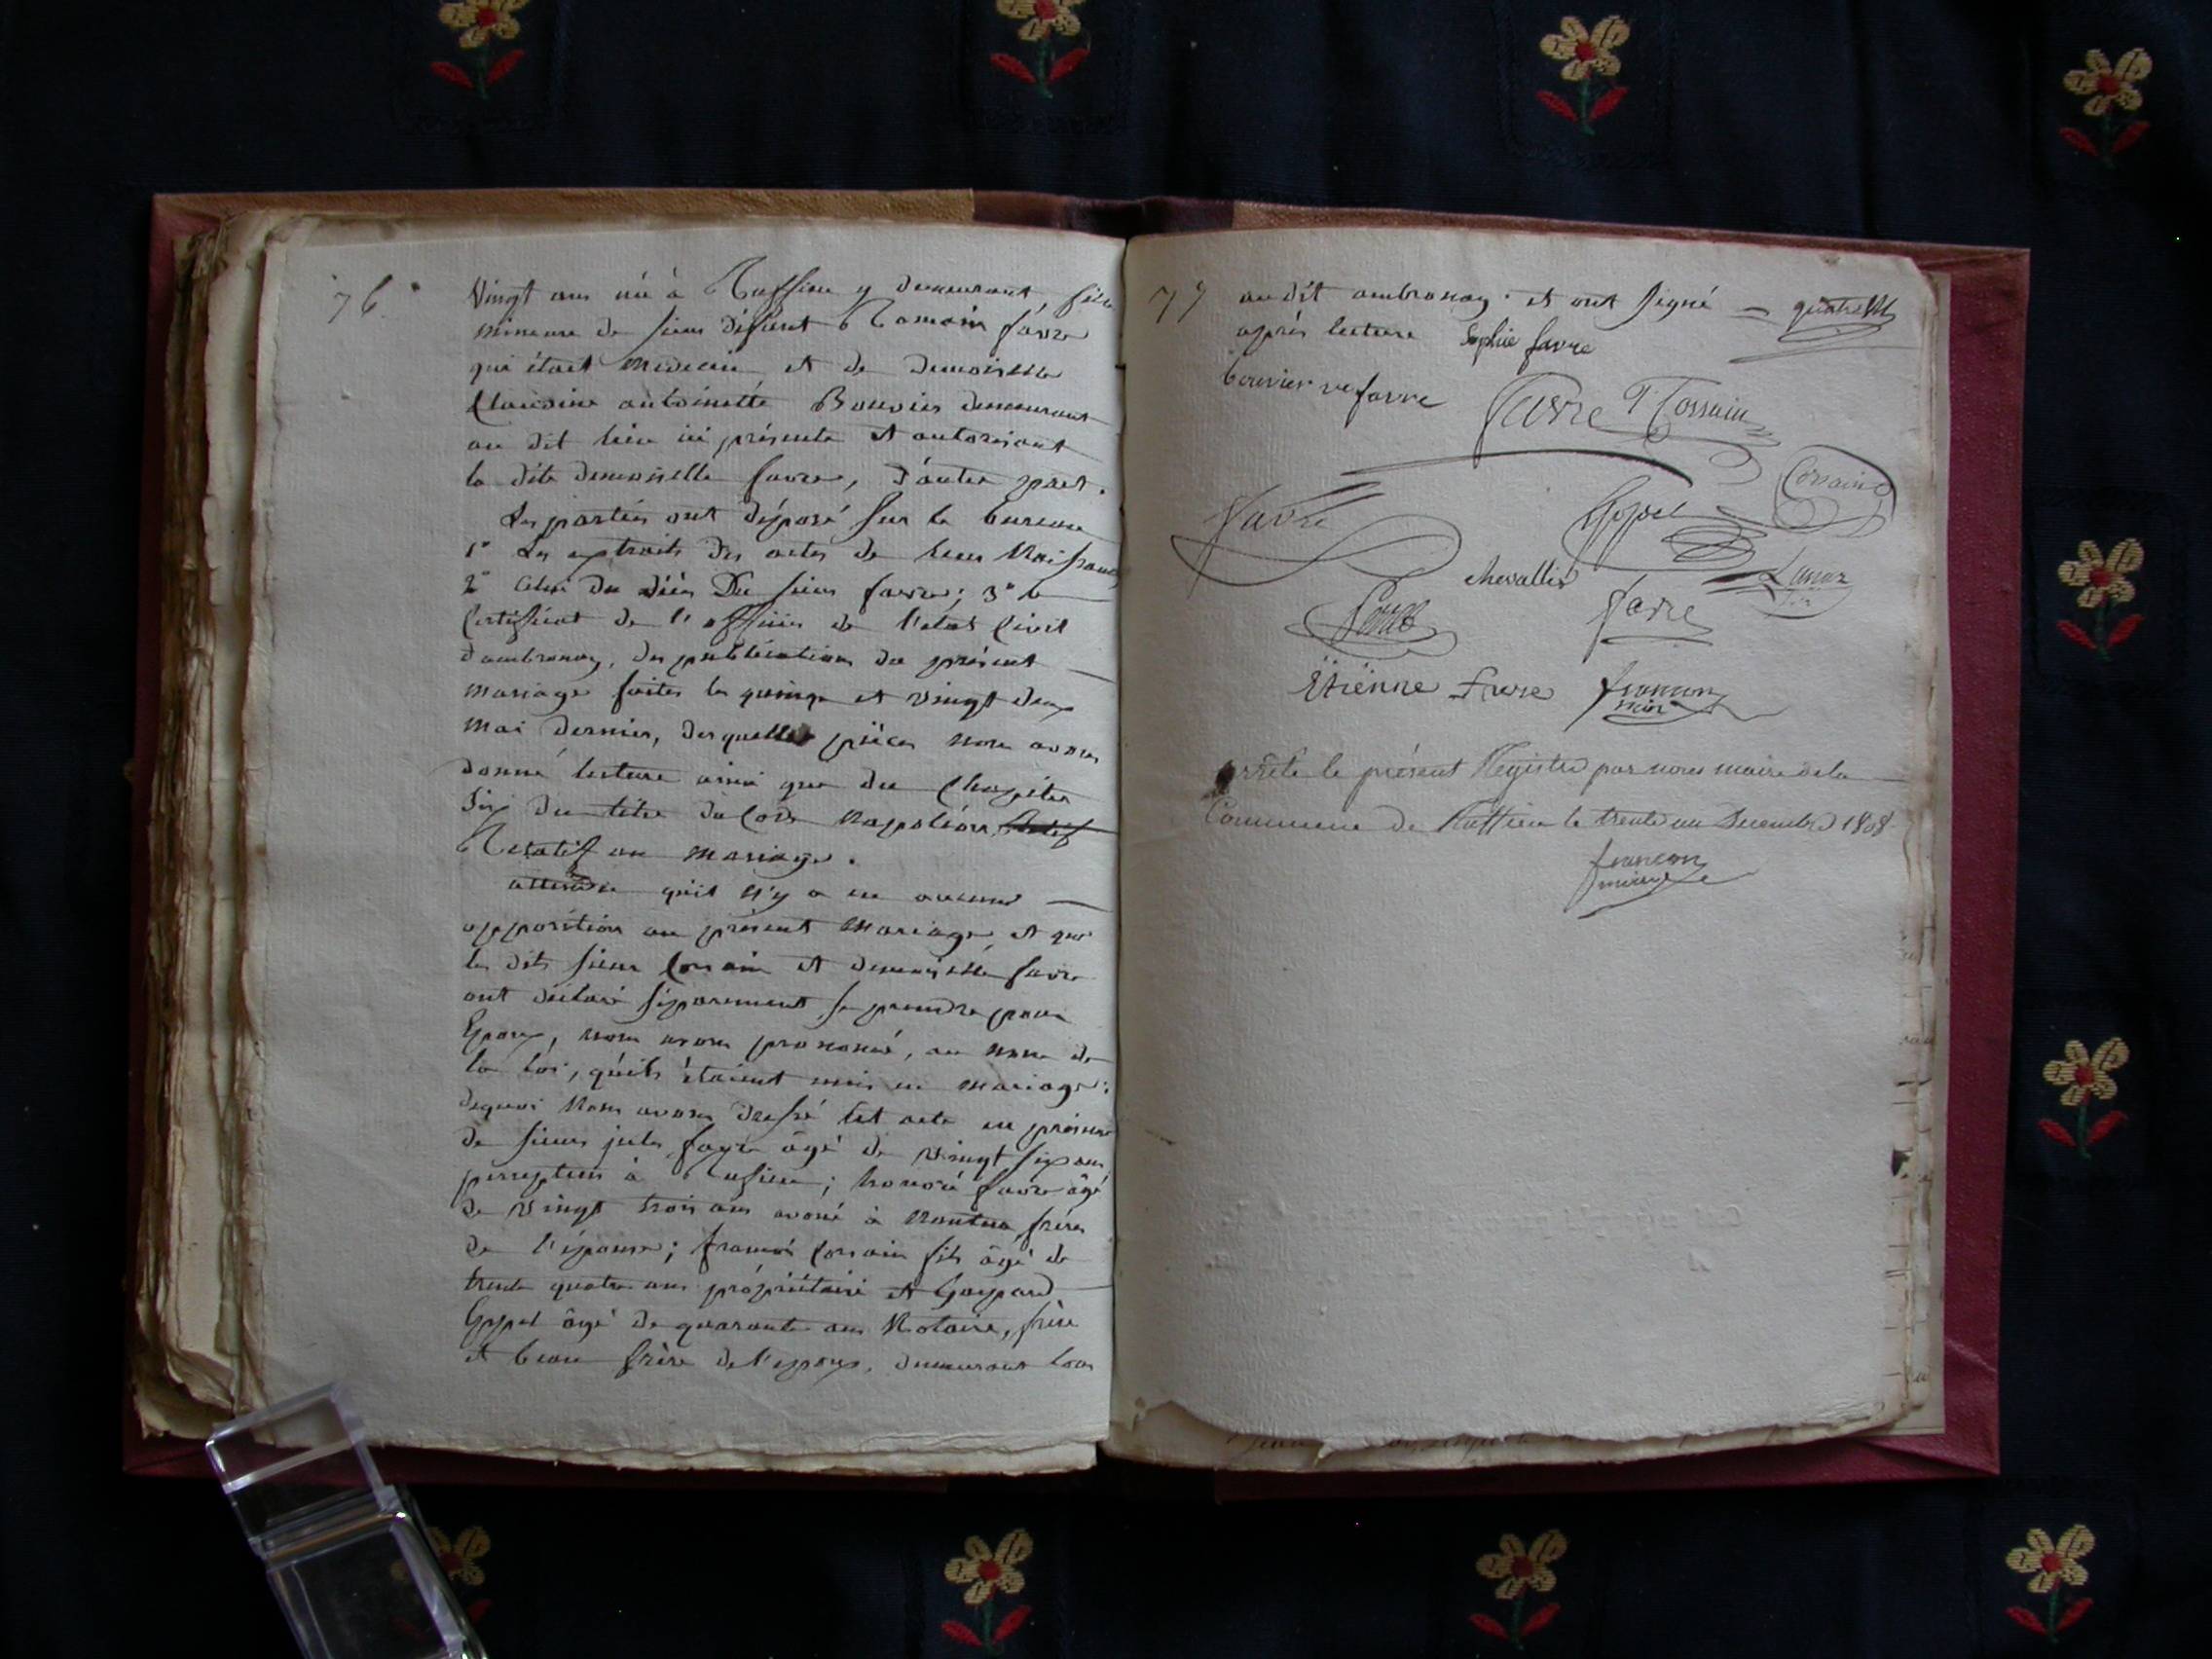 76
Vingt ans née à Ruffieu y demeurant, fille
mineure de sieur défunt Romain favre
qui était Medecin et de demoiselle
Claudine antoinette Bouvier demeurant
au dit lieu ici présente et autorisant
la dite demoiselle favre, d'autre part.
Les parties ont déposé sur le bureau
1° Les extraits des actes de leur Naissance
2° Celui du décès Du sieur favre; 3° le
Certificat de l'officier de l'état Civil
d'ambronay, des publications du présent
mariage faites les quinze et vingt deux
mai dernier, desquelles pièces nous avons
donné lecture ainsi que du Chapitre
Six du titre du Code Napoléon
Relatif au mariage.
attendu qu'il n'y a eu aucune
opposition au présent Mariage, et que
les dits sieur Corsain et demoiselle favre
ont déclaré séparement se prendre pour
Epoux, nous avons prononcé, au nom de
la loi, qu'ils étaient unis en mariage:
dequoi Nous avons dressé cet acte en présence
de sieurs jules favre âgé de vingt six ans
percepteur à Rufieu; honoré favre âgé
de vingt trois ans avoué à Nantua, frères
de l'épouse; francois Corsain fils âgé de
trente quatre ans propriétaire et Gaspard
Eppel âgé de quarante ans Notaire, frère
et beau frère de l'epoux, demeurant tous
77
au dit ambronay. et ont signé
après lecture Sophie favre
bouvier ve favre
favre Corsain
Corsain
favre
chevallier
favre
Etienne favre francon
maire
arrêté le présent Registre par nous maire de la
Commune de Ruffieu le trente un Decembre 1808
francon
maire